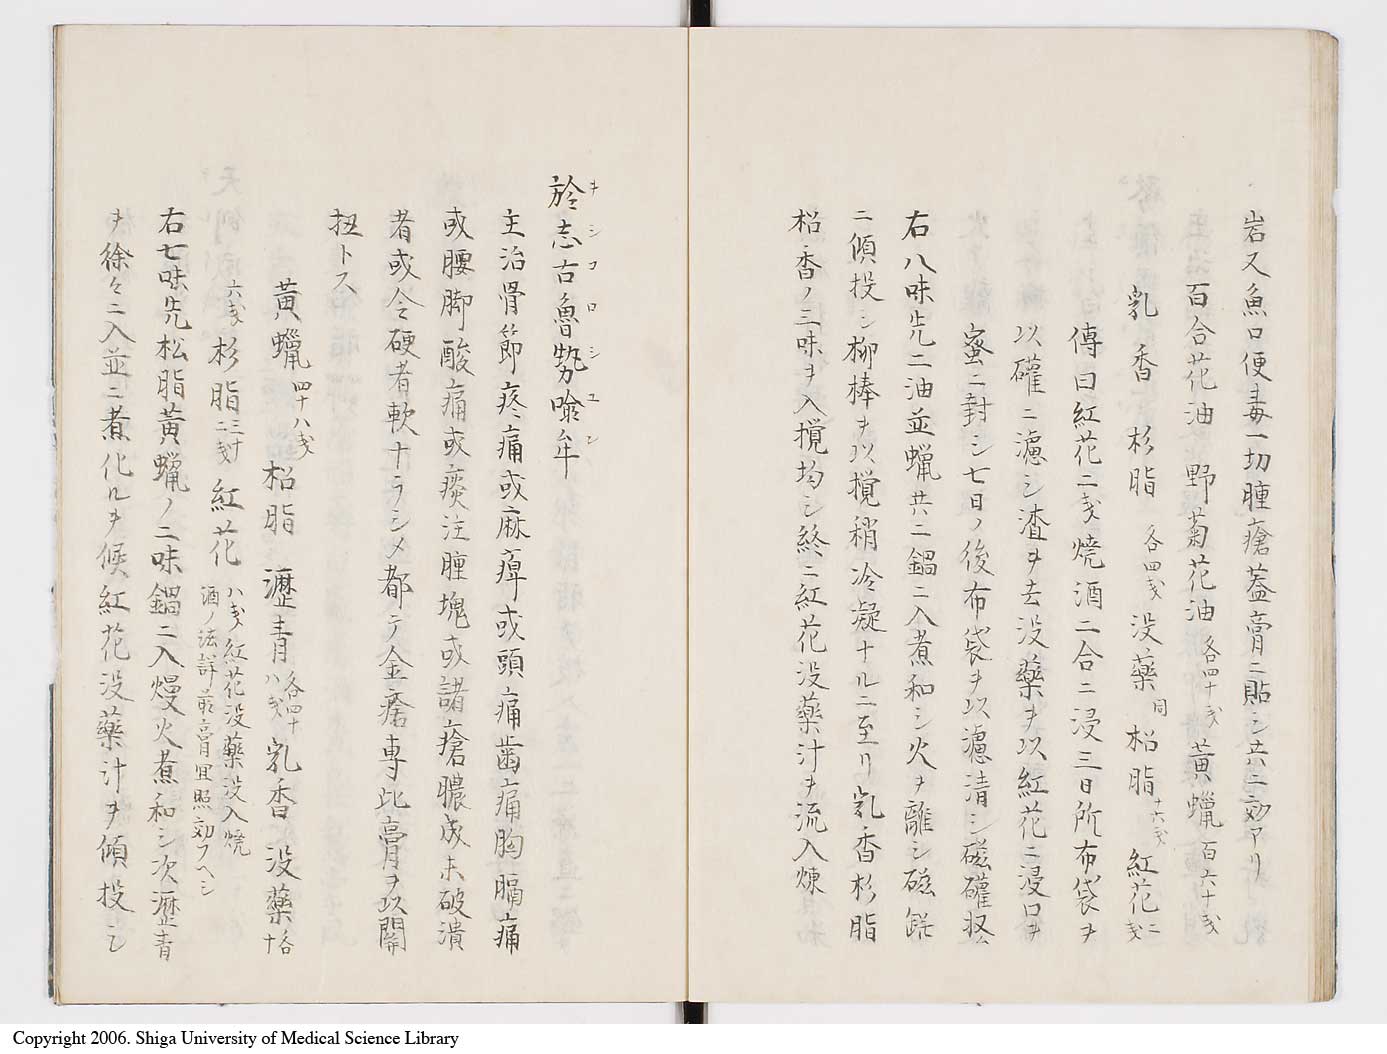 岩又魚口便毒一切腫瘡蓋膏ニ貼シ共ニ効アリ
百合花油 野菊花油各四十戔 黄蠟百六十戔
乳香 杉脂各四戔 没薬同 松脂十六戔 紅花二戔
傳曰紅花二戔焼酒二合ニ浸三日所布袋ヲ
以確ニ濾シ渣ヲ去没薬ヲ以紅花ニ浸口ヲ
蜜ニ封シ七日ノ後布袋ヲ以濾清シ磁確収
右八味先二油並蠟共ニ鍋ニ入煮和シ火ヲ離シ磁
ニ傾投シ柳棒ヲ以攪稍冷凝ナルニ至リ乳香杉脂
松香ノ三味ヲ入攪均シ終ニ紅花没薬汁ヲ流入煉
於志古魯勢喰牟
ヲシコロシエン
主治骨節疼痛或麻痺或頭痛歯痛胸膈痛
或腰脚酸痛或痰注腫塊或諸瘡膿成未破潰
者或令硬者軟ナラシメ都テ金瘡専此膏ヲ以関
扭トス
黄蠟四十八戔 松脂 瀝青各四十八戔 乳香 没薬各十
六戔 杉脂三十二戔 紅花八戔紅花没薬没入焼
酒ノ法詳前膏宜照効フヘシ
右七味先松脂黄蠟ノ二味鍋ニ入熳火煮和シ次瀝青
ヲ徐々ニ入並ニ煮化ルヲ候紅花没薬汁ヲ傾投シ
Copyright 2006. Shiga University of Medical Science Library